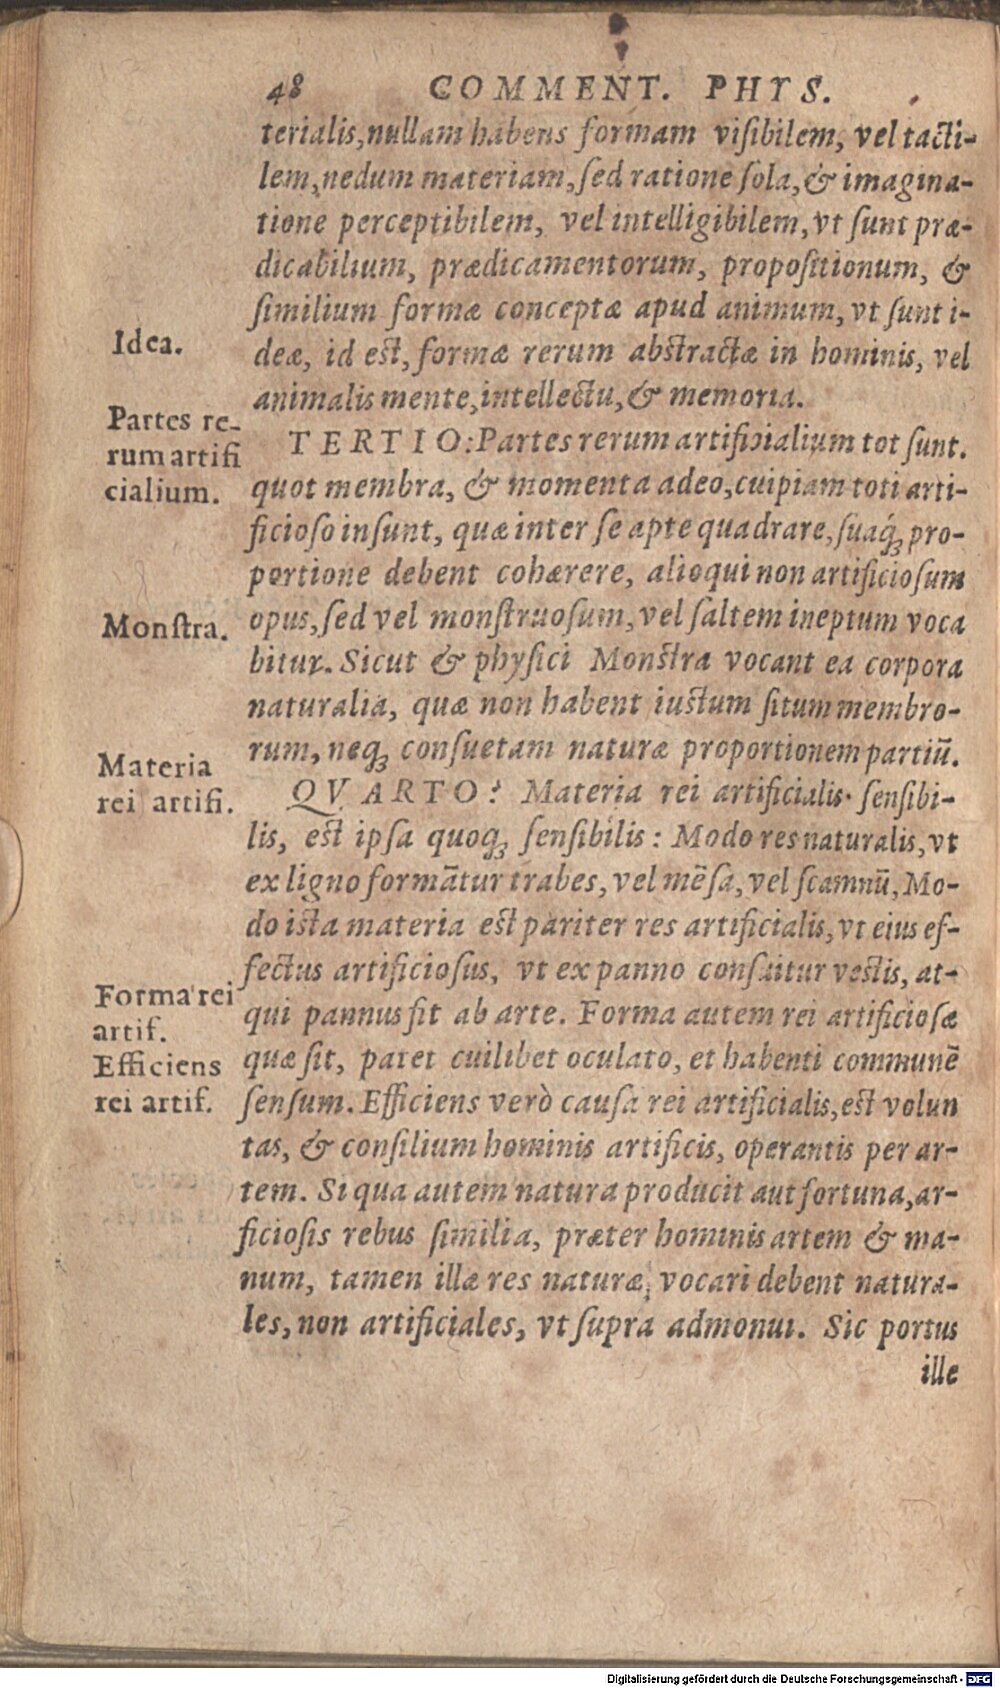 48 COMMENT. PHYS.
terialis, nullam habens formam visibilem, vel tacti-
lem, nedum materiam, sed ratione sola, & imagina-
tione perceptibilem, vel intelligibilem, vt sunt præ-
dicabilium, prædicamentorum, propositionum, &
similium formæ conceptæ apud animum, vt sunt i-
Idea.
deæ, id est, formæ rerum abstractæ in hominis, vel
animalis mente, intellectu, & memoria.
Partes re-
rum artifi
cialium.
TERTIO: Partes rerum artificialium tot sunt.
quot membra, & momenta adeo, cuipiam toti arti-
ficioso insunt, quæ inter se apte quadrare, suaq́ꝫ pro-
portione debent cohærere, alioqui non artificiosum
Monstra.
opus, sed vel monstruosum, vel saltem ineptum voca
bitur. Sicut & physici Monstra vocant ea corpora
naturalia, quæ non habent iustum situm membro-
rum, neqꝫ consuetam naturæ proportionem partiũ.
Materia
rei artifi.
QVARTO: Materia rei artificialis sensibi-
lis, est ipsa quoqꝫ sensibilis: Modo res naturalis, vt
ex ligno formãtur trabes, vel mẽsa, vel scamnũ, Mo-
do ista materia est pariter res artificialis, vt eius ef-
fectus artificiosus, vt ex panno consuitur vestis, at-
Forma rei
artif.
qui pannus fit ab arte. Forma autem rei artificiosæ
Efficiens
rei artif.
quæ sit, patet cuilibet oculato, et habenti communẽ
sensum. Efficiens verò causa rei artificialis, est volun
tas, & consilium hominis artificis, operantis per ar-
tem. Si qua autem natura producit aut fortuna, ar-
ficiosis rebus similia, præter hominis artem & ma-
num, tamen illæ res naturæ, vocari debent natura-
les, non artificiales, vt supra admonui. Sic portus
ille
Digitalisierung gefördert durch die Deutsche Forschungsgemeinschaft - DFG